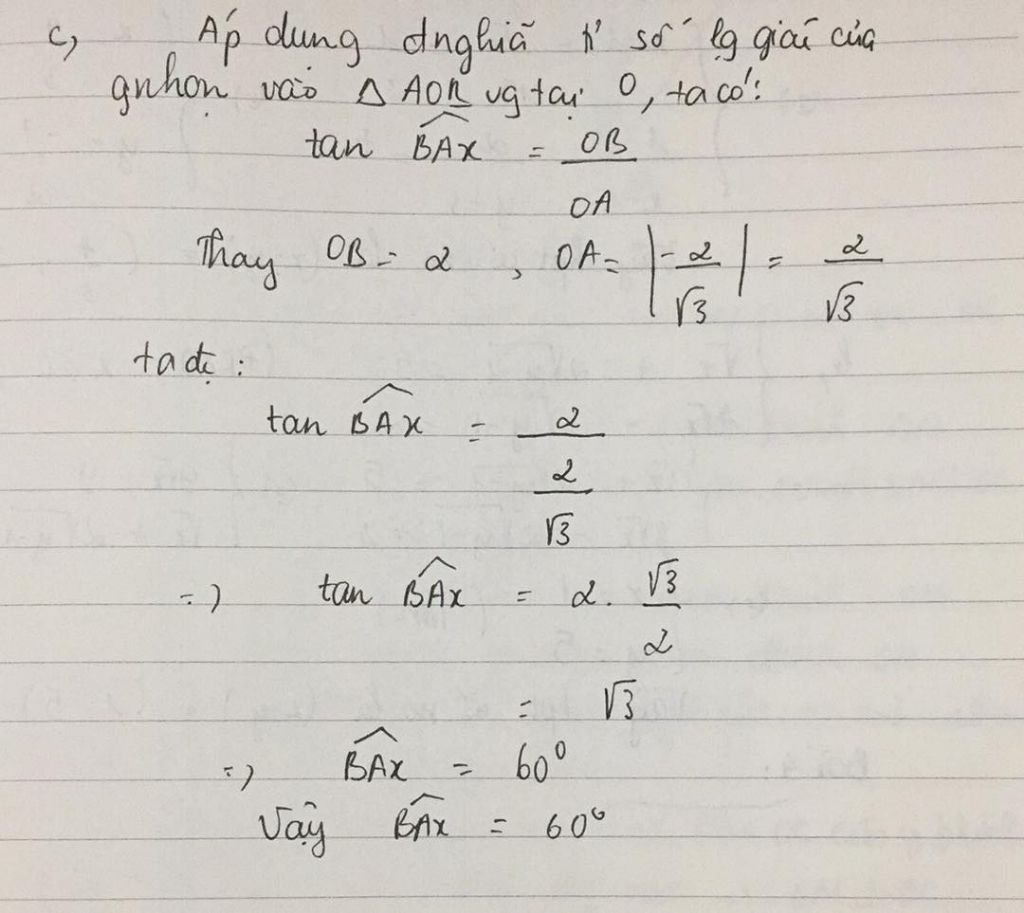 c, Áp dụng đnghiã tỉ số lg giác của
gnhọn vào Δ AOB vg tại O, ta có:
tan BAx = OB
OA
Thay OB = 2 , OA = |-2/√3| = 2/√3
ta đc :
tan BAx = 2
2
√3
=) tan BAx = 2. √3
2
= √3
=) BAx = 60⁰
Vậy BAx = 60⁰